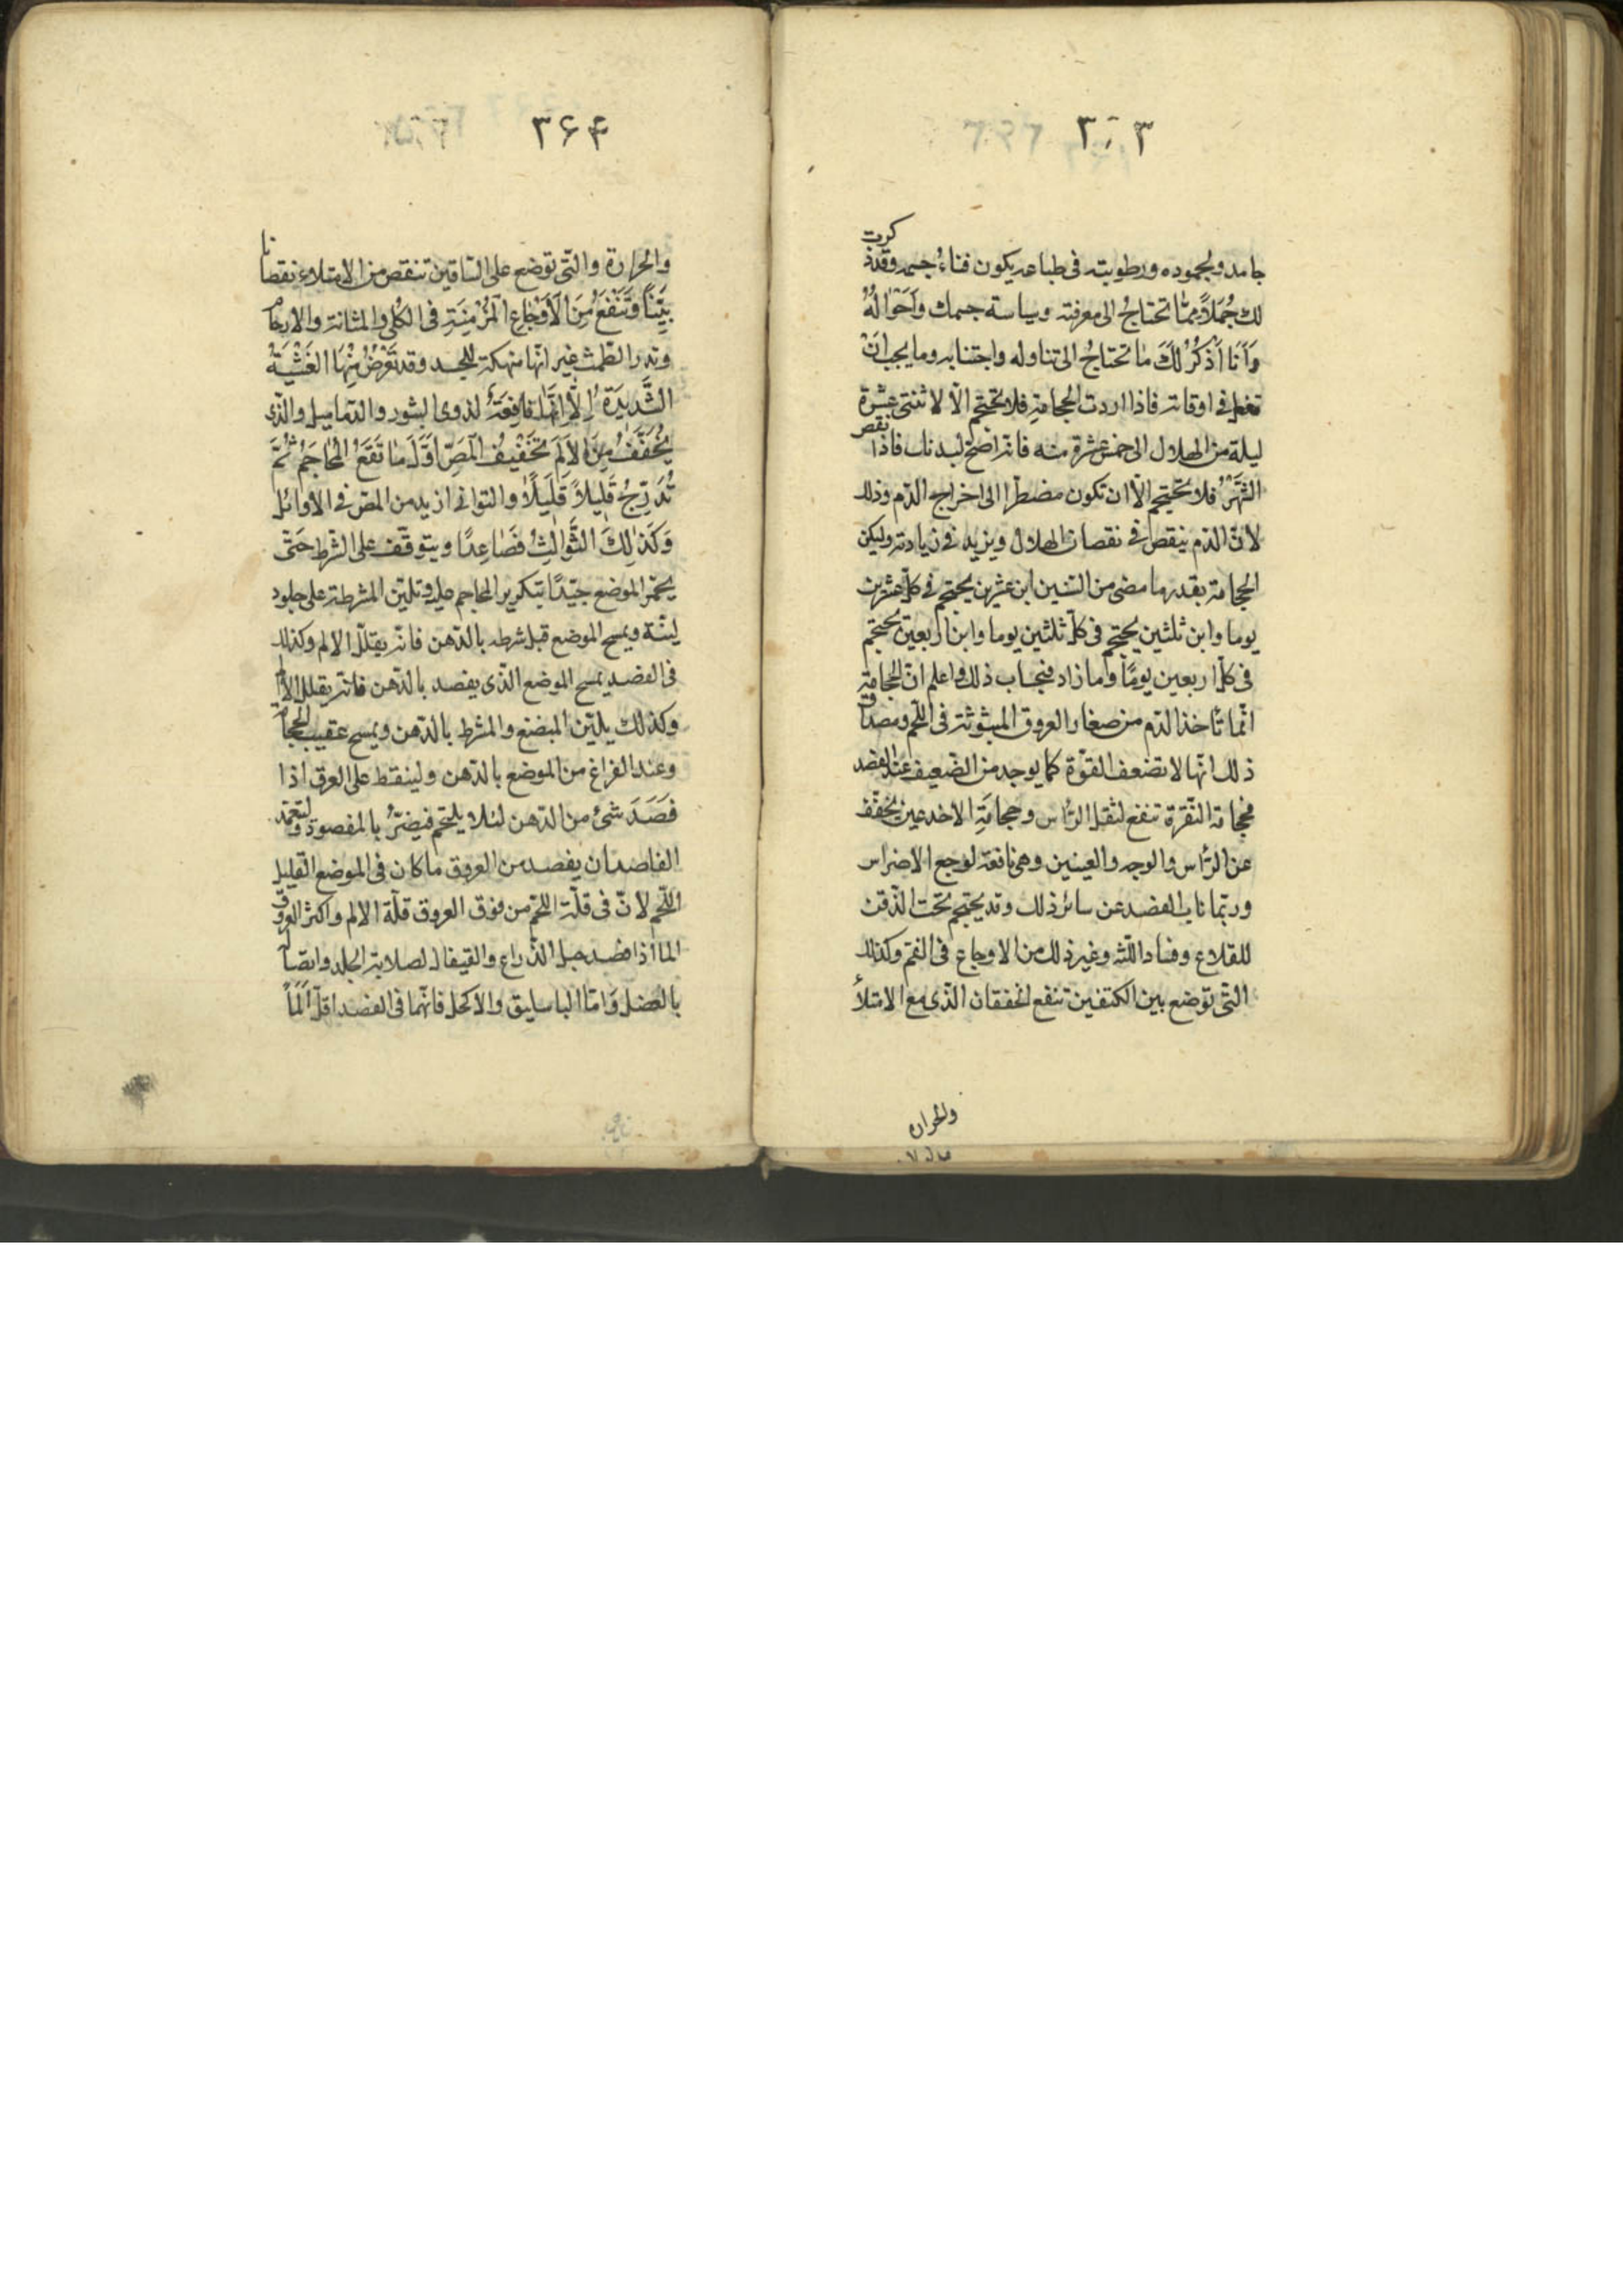 ٣٦٣
جامد ولجموده ورطوبته فى طباعه يكون فناء جسمه وقد ذكرت
لك جُمَلاً ممّا تحتاجُ الى معرفته وسياسة جسمك وَاَحْوالُهُ
وَاَنَا اَذْكُرُ لَكَ مٰا تحتاجُ الى تناوله واجتنابه وما يجب اَنْ
تفعله فى اوقاته فاذا اردت الحجامةِ فلا تحتجم الّا لاثنتى عشرة
ليلة من الهلال الى خمس عشرة منه فانّه اصحّ لبدنك فاذا نقص
الشَّهْرُ فلا تحتجم الّا ان تكون مضطرّا الى اخراج الدّم وذلك
لانّ الدّم ينقص فى نقصان الهلال ويزيد فى زيادته وليكن
الحجامة بقدر ما مضى من السّنين ابن عشرين يحتجم فى كلّ عشرين
يوما وابن ثلثين يحتجم فى كلّ ثلثين يوما وابن اربعين يحتجم
فى كلّ اربعين يومًا وما زاد فبحساب ذلك واعلم انّ الحجامة
انّما تأخذ الدّم من صغار العروق المبثوثة فى اللّحم ومصداق
ذلك انّها لا تضعف القوّة كما يوجد من الضّعيف عند الفصد
فحجامة النّقرة تنفع لثقل الرّأس وحجامَةِ الاخدعين يخفّف
عن الرّأس والوجه والعينين وهى نافعة لوجع الاضراس
وربّما ناب الفصد عن سائر ذلك وقد يحتجم تحت الذّقن
للقلاع وفساد اللّثه وغير ذلك من الاوجاع فى الفم وكذلك
التّى توضع بين الكتفين تنفع الخفقان الّذى مع الامتلأ
والحراره
٣۶۴
والحرارة والتّى توضع على السّاقين تنقص من الامتلاء نقصانا
بَيّنًا وَتَنْفَعُ مِنَ الْاَوْجٰاعِ الْمُزْمِنَةِ فى الكُلى والمثانة والارحام
وتدر الطّمث غير انّها منهكة للجسد وقد تَعْرُضُ مِنْهَا الغَشْيَةُ
الشَّدِيدَةُ اِلّٰا اَنَّهَا نٰافِعَةٌ لذوى البثور والدّماميل والّذى
يُخَفِّفُ مِنَ الْاَلَمِ تَخْفيفُ الْمَصِّ اَوَّلَ مٰا تَقَعُ الْمَحٰاجِمُ ثُمَّ
تُدَرِّجُ قَلِيلاً قَلِيلًا والثوانى ازيد من المصّ فى الأوائل
وَكَذٰلِكَ الثَّوٰالِثُ فَصٰاعِدًا ويتوقّف على الشّرط حَتّٰى
يحمّر الموضع جيّدًا بتكرير المحاجم عليه وتليّن المشرطة على جلود
ليّنة ويمسح الموضع قبل شرطه بالدّهن فانّه يقلّل الالم وكذلك
فى الفصد يمسح الموضع الّذى يفصد بالدّهن فانّه يقلل الألم
وكذلك يليّن المبضع والمشرط بالدّهن ويمسح عقيب الحجامة
وعند الفراغ من الموضع بالدّهن ولينقط على العرق اذا
فَصَدَ شئ من الدّهن لئلا يلتحم فيضرُّ بالمفصود وليتعمّد
الفاصد ان يفصد من العروق ما كان فى الموضع القليل
اللّحم لانّ فى قلّة اللحم من فوق العروق قلّة الالم واكثر العروق
الما اذا فصد حبل الذّراع والقيفال لصلابة الجلد واتّصاله
بالعضل وَامّا الباسليق والاكحل فانّهما فى الفصد اقلّ اَلَماً